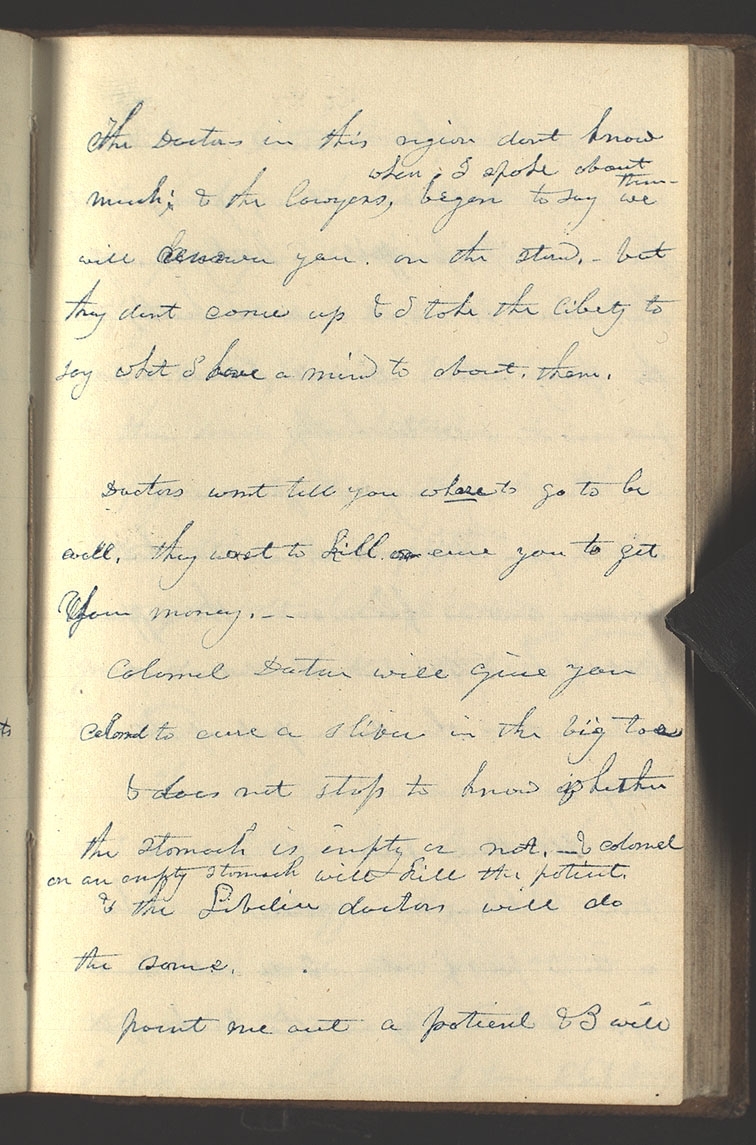 The Doctors in this region dont know
when I spoke about them
much; & the lawyers, began to say we
will down you on the stand, - but
they dont come up & I take the liberty to
say what I have a mind to about them.
Doctors wont tell you where to go to be
well, they want to kill or cure you to get
your money. --
Colomel Doctor will give you
calomel to cure a sliver in the big toe
& does not stop to know whether
the stomach is empty or not. & colomel
on an empty stomach will kill the patient.
& the Lobelia doctors will do
the same.
point me out a patient & I will
ts